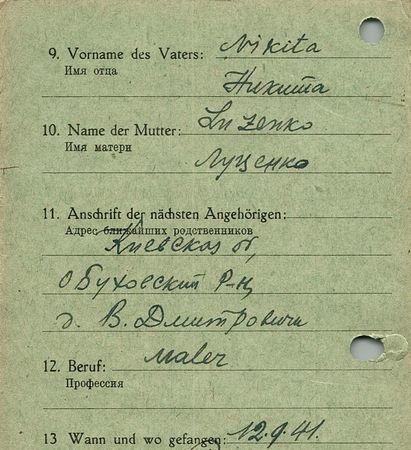 9. Vorname des Vaters: Nikita
Имя отца
Никита
10. Name der Mutter: Luzenko
Имя матери
Луценко
11. Anschrift der nächsten Angehörigen:
Адрес ближайших родственников
Киевская об,
Обуховский Р-н,
д. В. Дмитровичи
12. Beruf: Maler
Профессия
13 Wann und wo gefangen: 12.9.41.